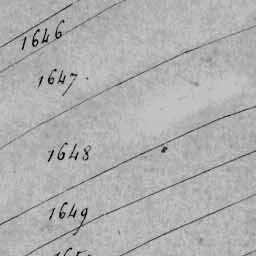 1646
1647.
1648
1649